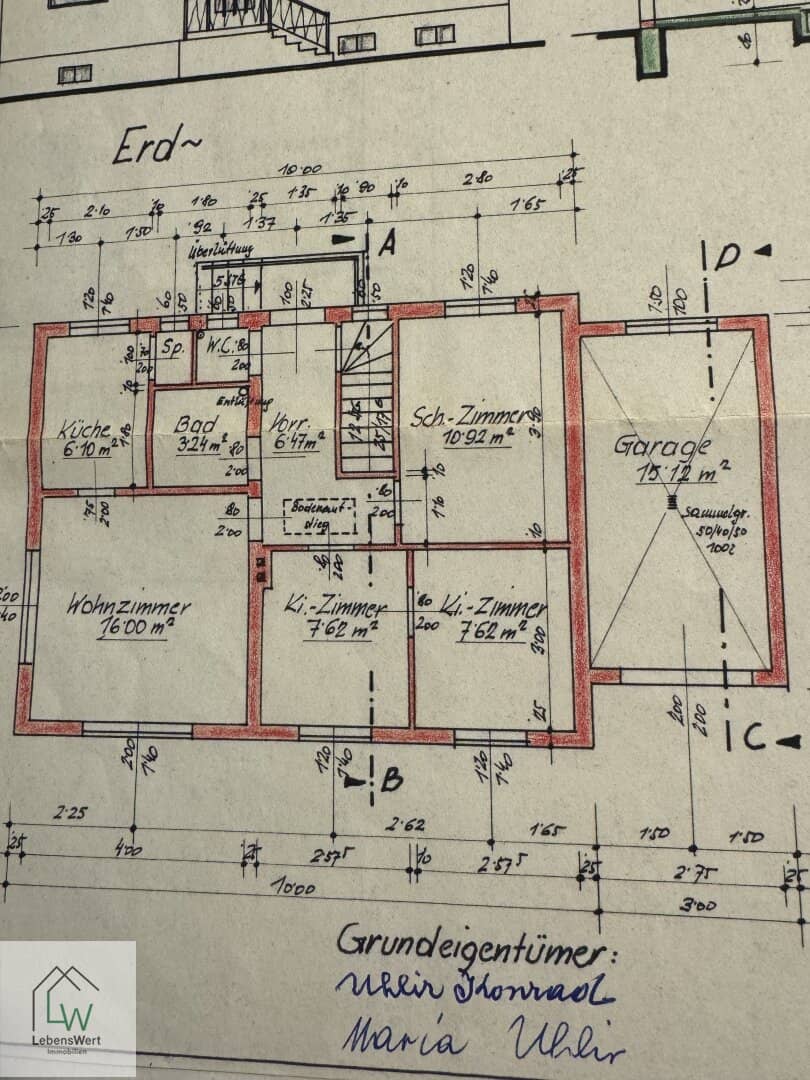 Erd~
10·00
25 2·10 10 1·80 25 1·35 10 90 10 2·80 25
1·30 1·50 92 1·37 1·35 1·65
Überlüftung
A
D
120 1·40
60 50
100 225
120 1·40
1·50 100
Sp.
W.C. 80
200
Entlüftung
Küche
6·10 m²
Bad
3·24 m²
Vorr.
6·47 m²
Sch.-Zimmer
10·92 m²
3·90
Garage
15·12 m²
80
2·00
75
2·00
80
2·00
Bodenauf-
stieg
80
200
1·10
10
Sammelgr.
50/40/50
100l
Wohnzimmer
16·00 m²
Ki.-Zimmer
7·62 m²
80
200
Ki.-Zimmer
7·62 m²
3·00
25
200 1·40
120 1·40
1·20 1·40
200 200
B
C
2·25 2·62 1·65 1·50 1·50
25 4·00 25 2·57⁵ 10 2·57⁵ 25 2·75 25
10·00 3·00
Grundeigentümer:
Uhlir Konrad
Maria Uhlir
LW
LebensWert
Immobilien